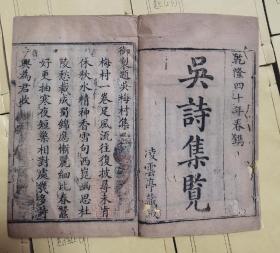 乾隆四十年春鐫
吳詩集覧
凌雲亭藏板
御製題吳梅村集
梅村一卷足風流往復披尋未肯
休秋水精神香雪句西崑幽思杜
陵愁裁成蜀錦應慚麗細比春蠶
好更抽寒夜短檠相對處幾多詩
興為君收